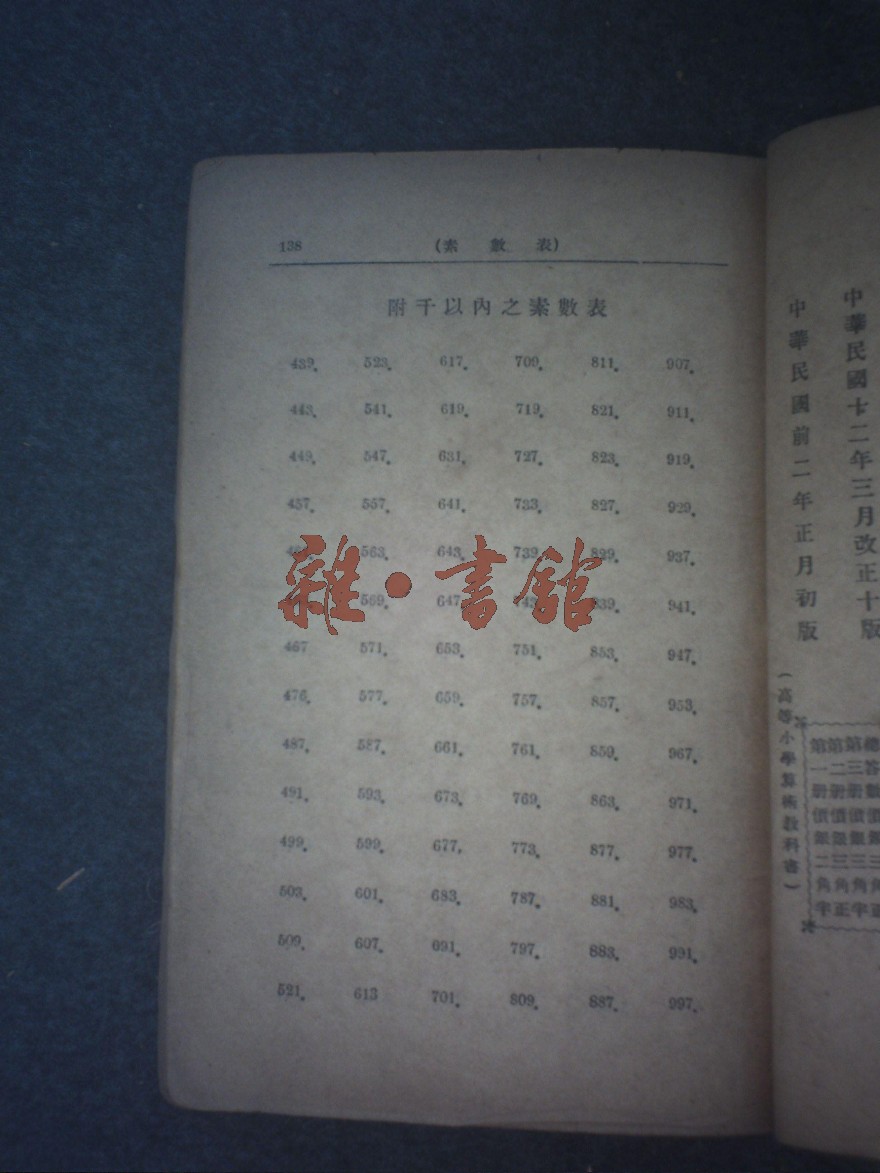 138
(素數表)
附千以內之素數表
439. 523. 617. 709. 811. 907.
443. 541. 619. 719. 821. 911.
449. 547. 631. 727. 823. 919.
457. 557. 641. 733. 827. 929.
563. 643. 739. 829. 937.
569. 647. 839. 941.
467 571. 653. 751. 853. 947.
476. 577. 659. 757. 857. 953.
487. 587. 661. 761. 859. 967.
491. 593. 673. 769. 863. 971.
499. 599. 677. 773. 877. 977.
503. 601. 683. 787. 881. 983.
509. 607. 691. 797. 883. 991.
521. 613 701. 809. 887. 997.
雜·書館
中華民國十二年三月改正十版
中華民國前二年正月初版
(高等小學算術教科書)
第三册價銀三角半
第二册價銀三角正
第一册價銀二角半